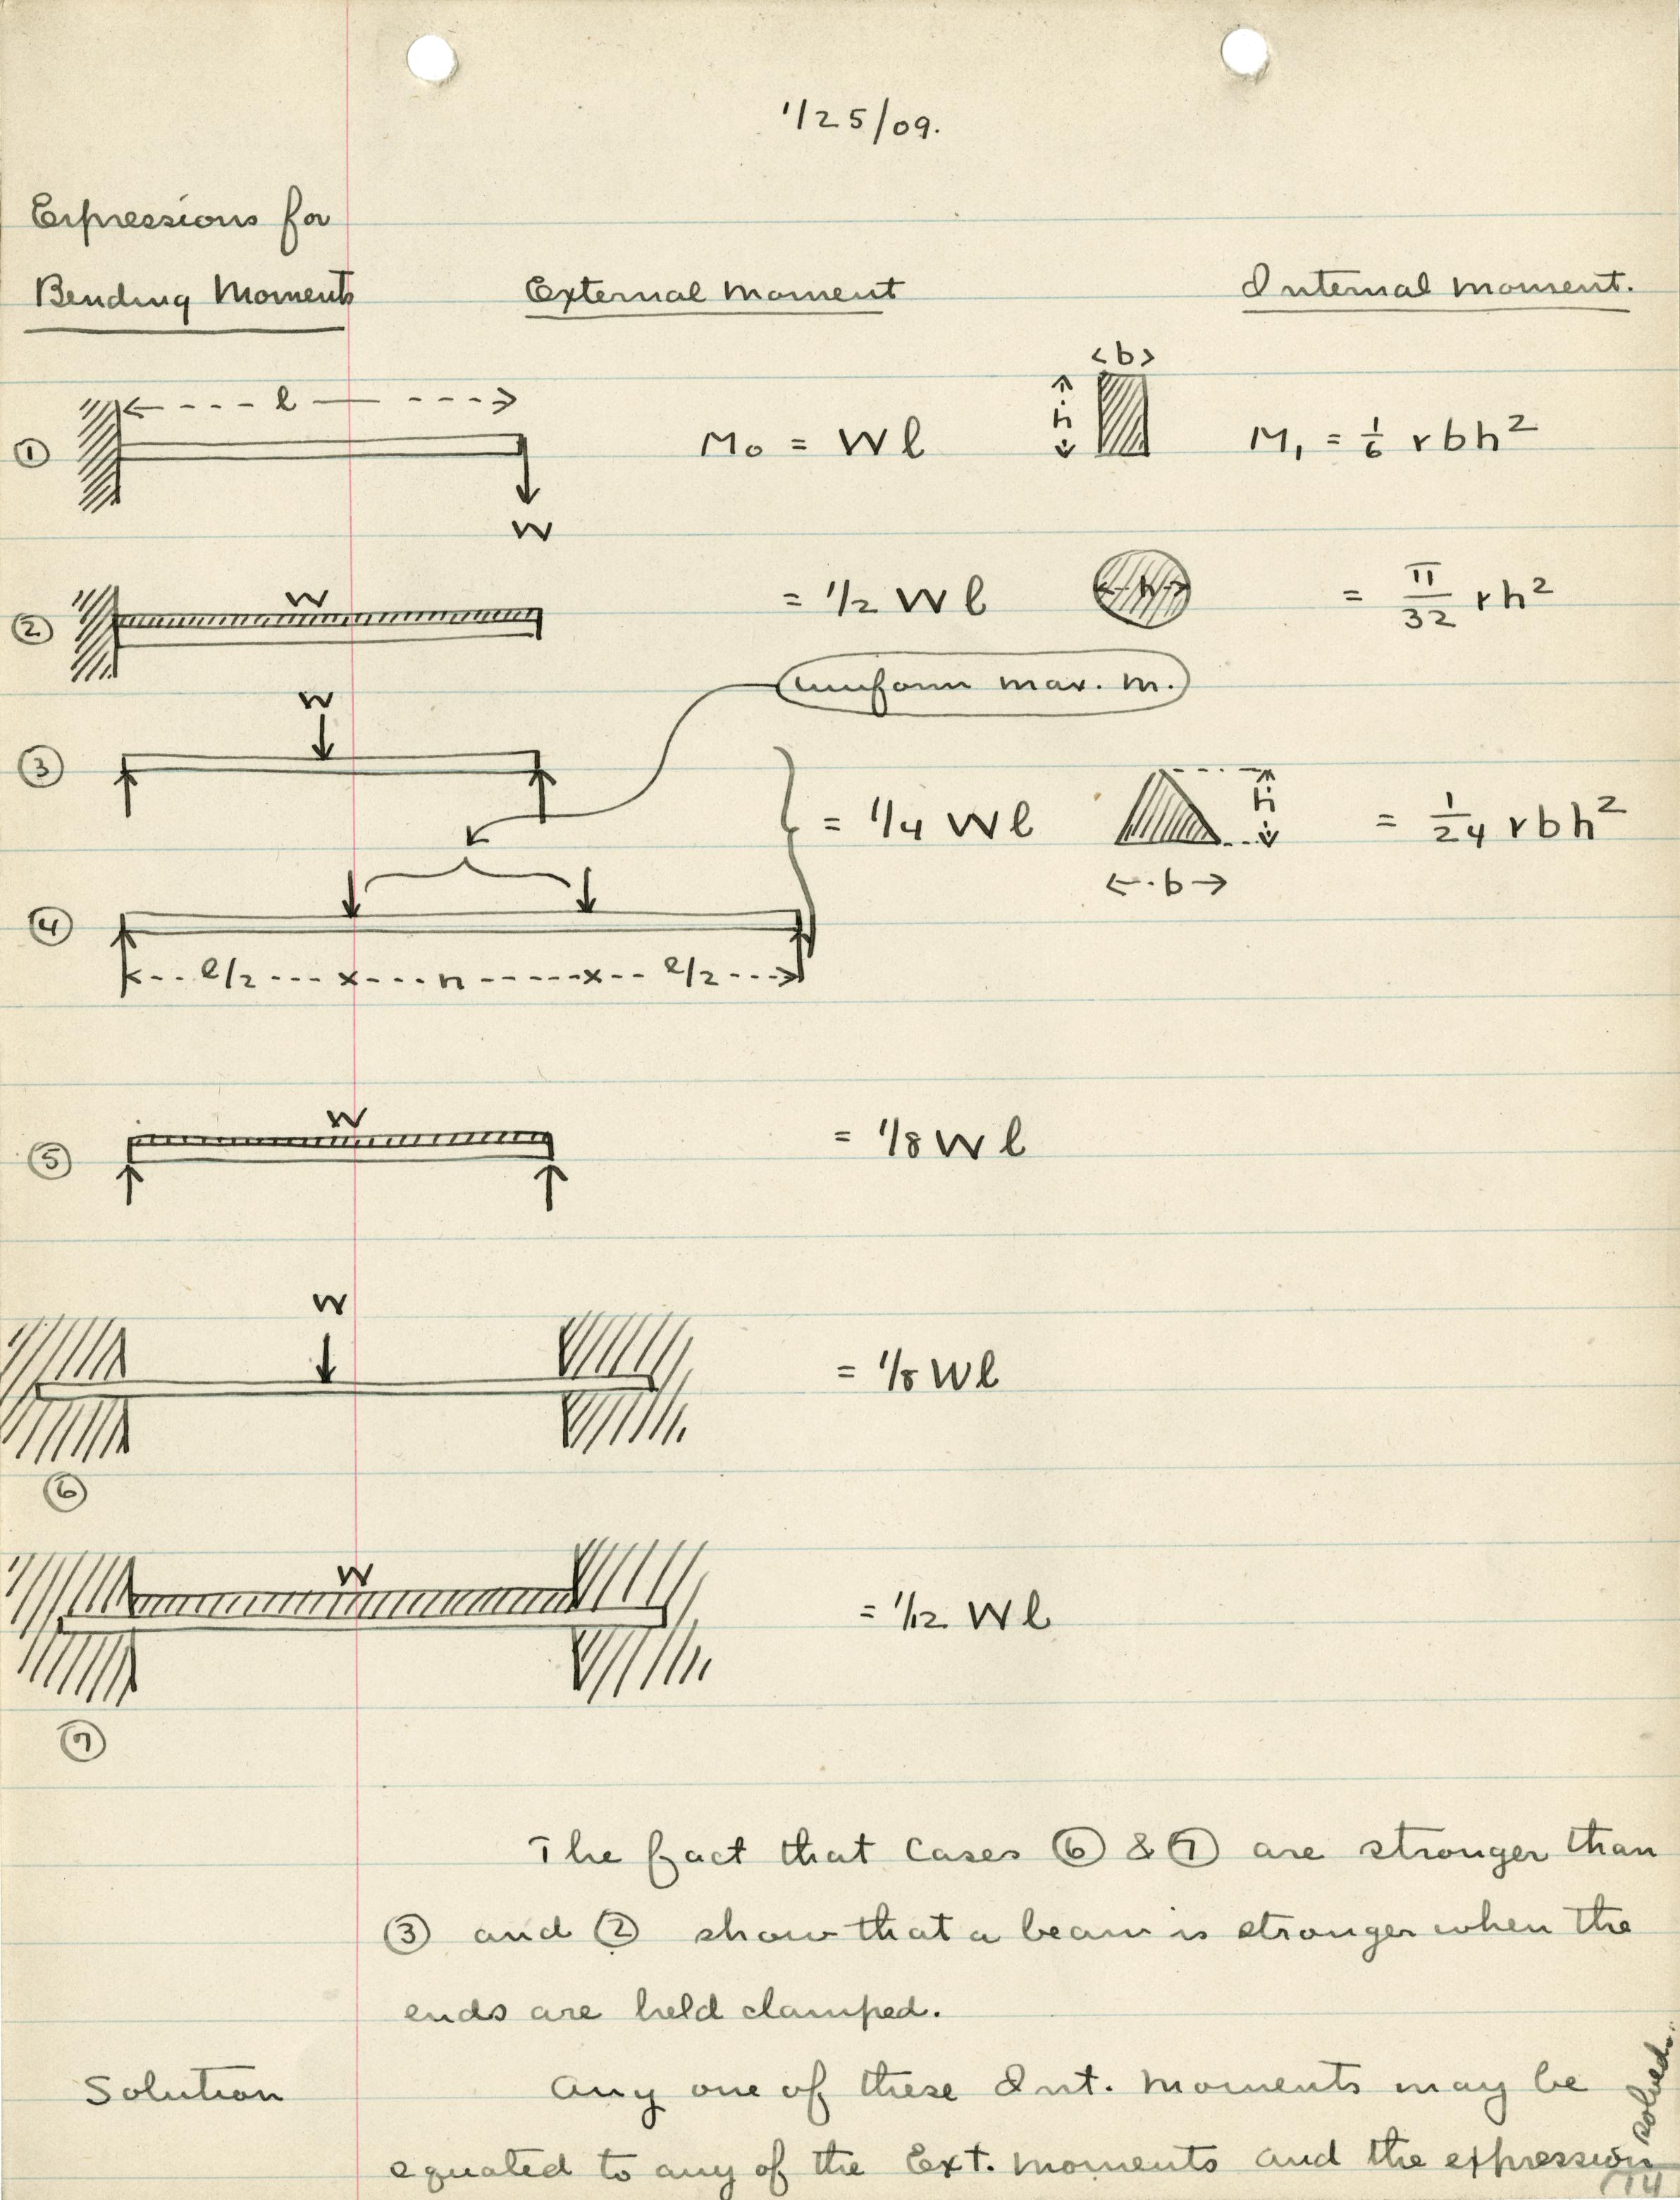 1/25/09.
Expressions for
Bending Moments External Moment Internal Moment.
<b>
l
① h M₀ = Wl M₁ = 1/6 rbh²
W
② W = 1/2 Wl h = π/32 rh²
uniform max. m.
W
③
= 1/4 Wl h = 1/24 rbh²
b
④
l/2 x n x l/2
W
⑤ = 1/8 Wl
W
= 1/8 Wl
⑥
W
= 1/12 Wl
⑦
The fact that cases ⑥ & ⑦ are stronger than
③ and ② show that a beam is stronger when the
ends are held clamped.
Solution Any one of these Int. Moments may be
equated to any of the Ext. Moments and the expression
solved.
14